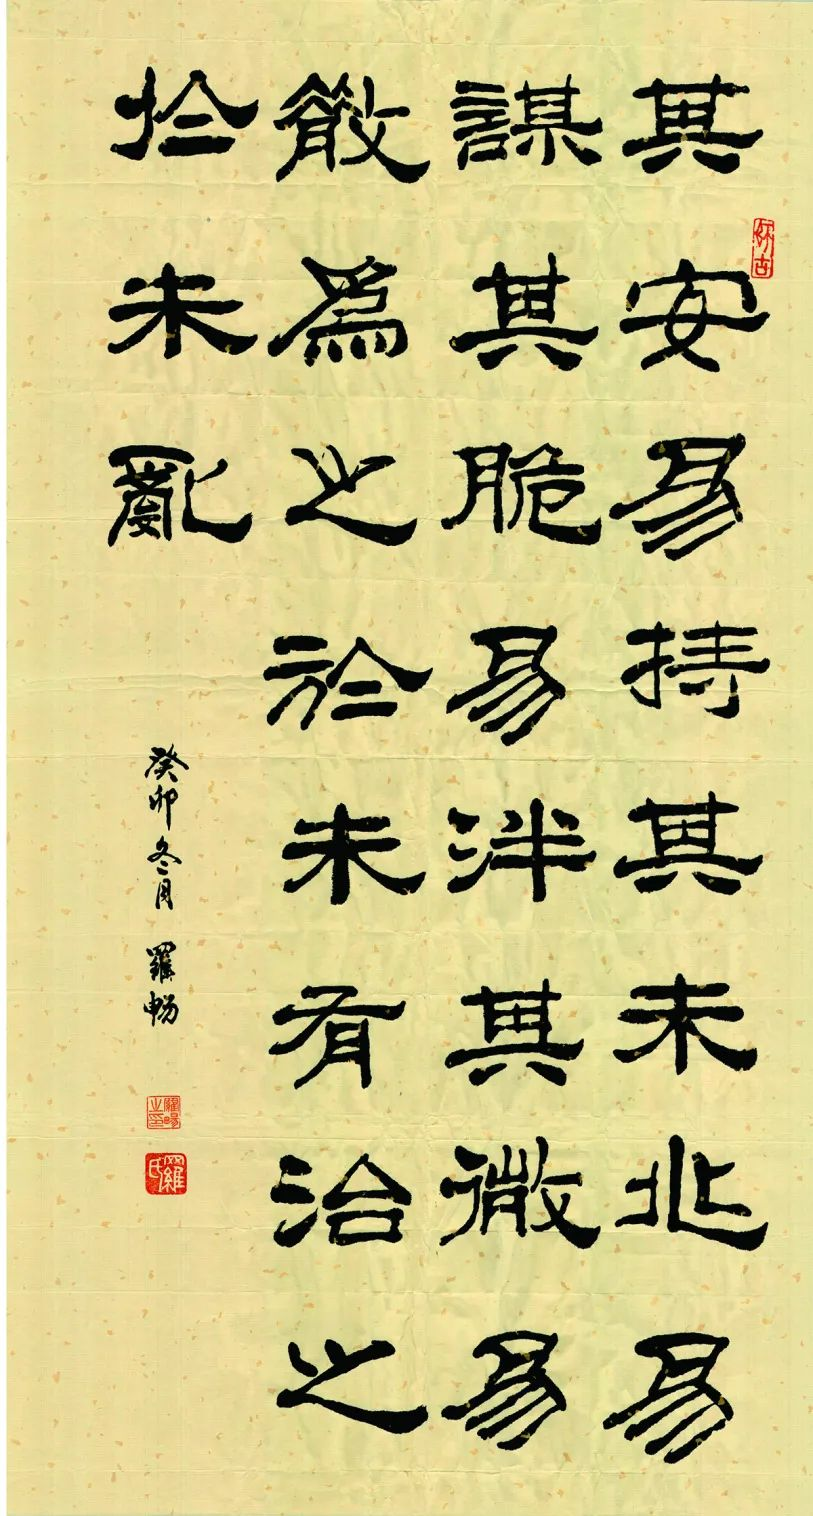 其安易持其未兆易
謀其脆易泮其微易
散爲之於未有治之
於未亂
癸卯冬月 羅畅
羅暢之印
羅氏